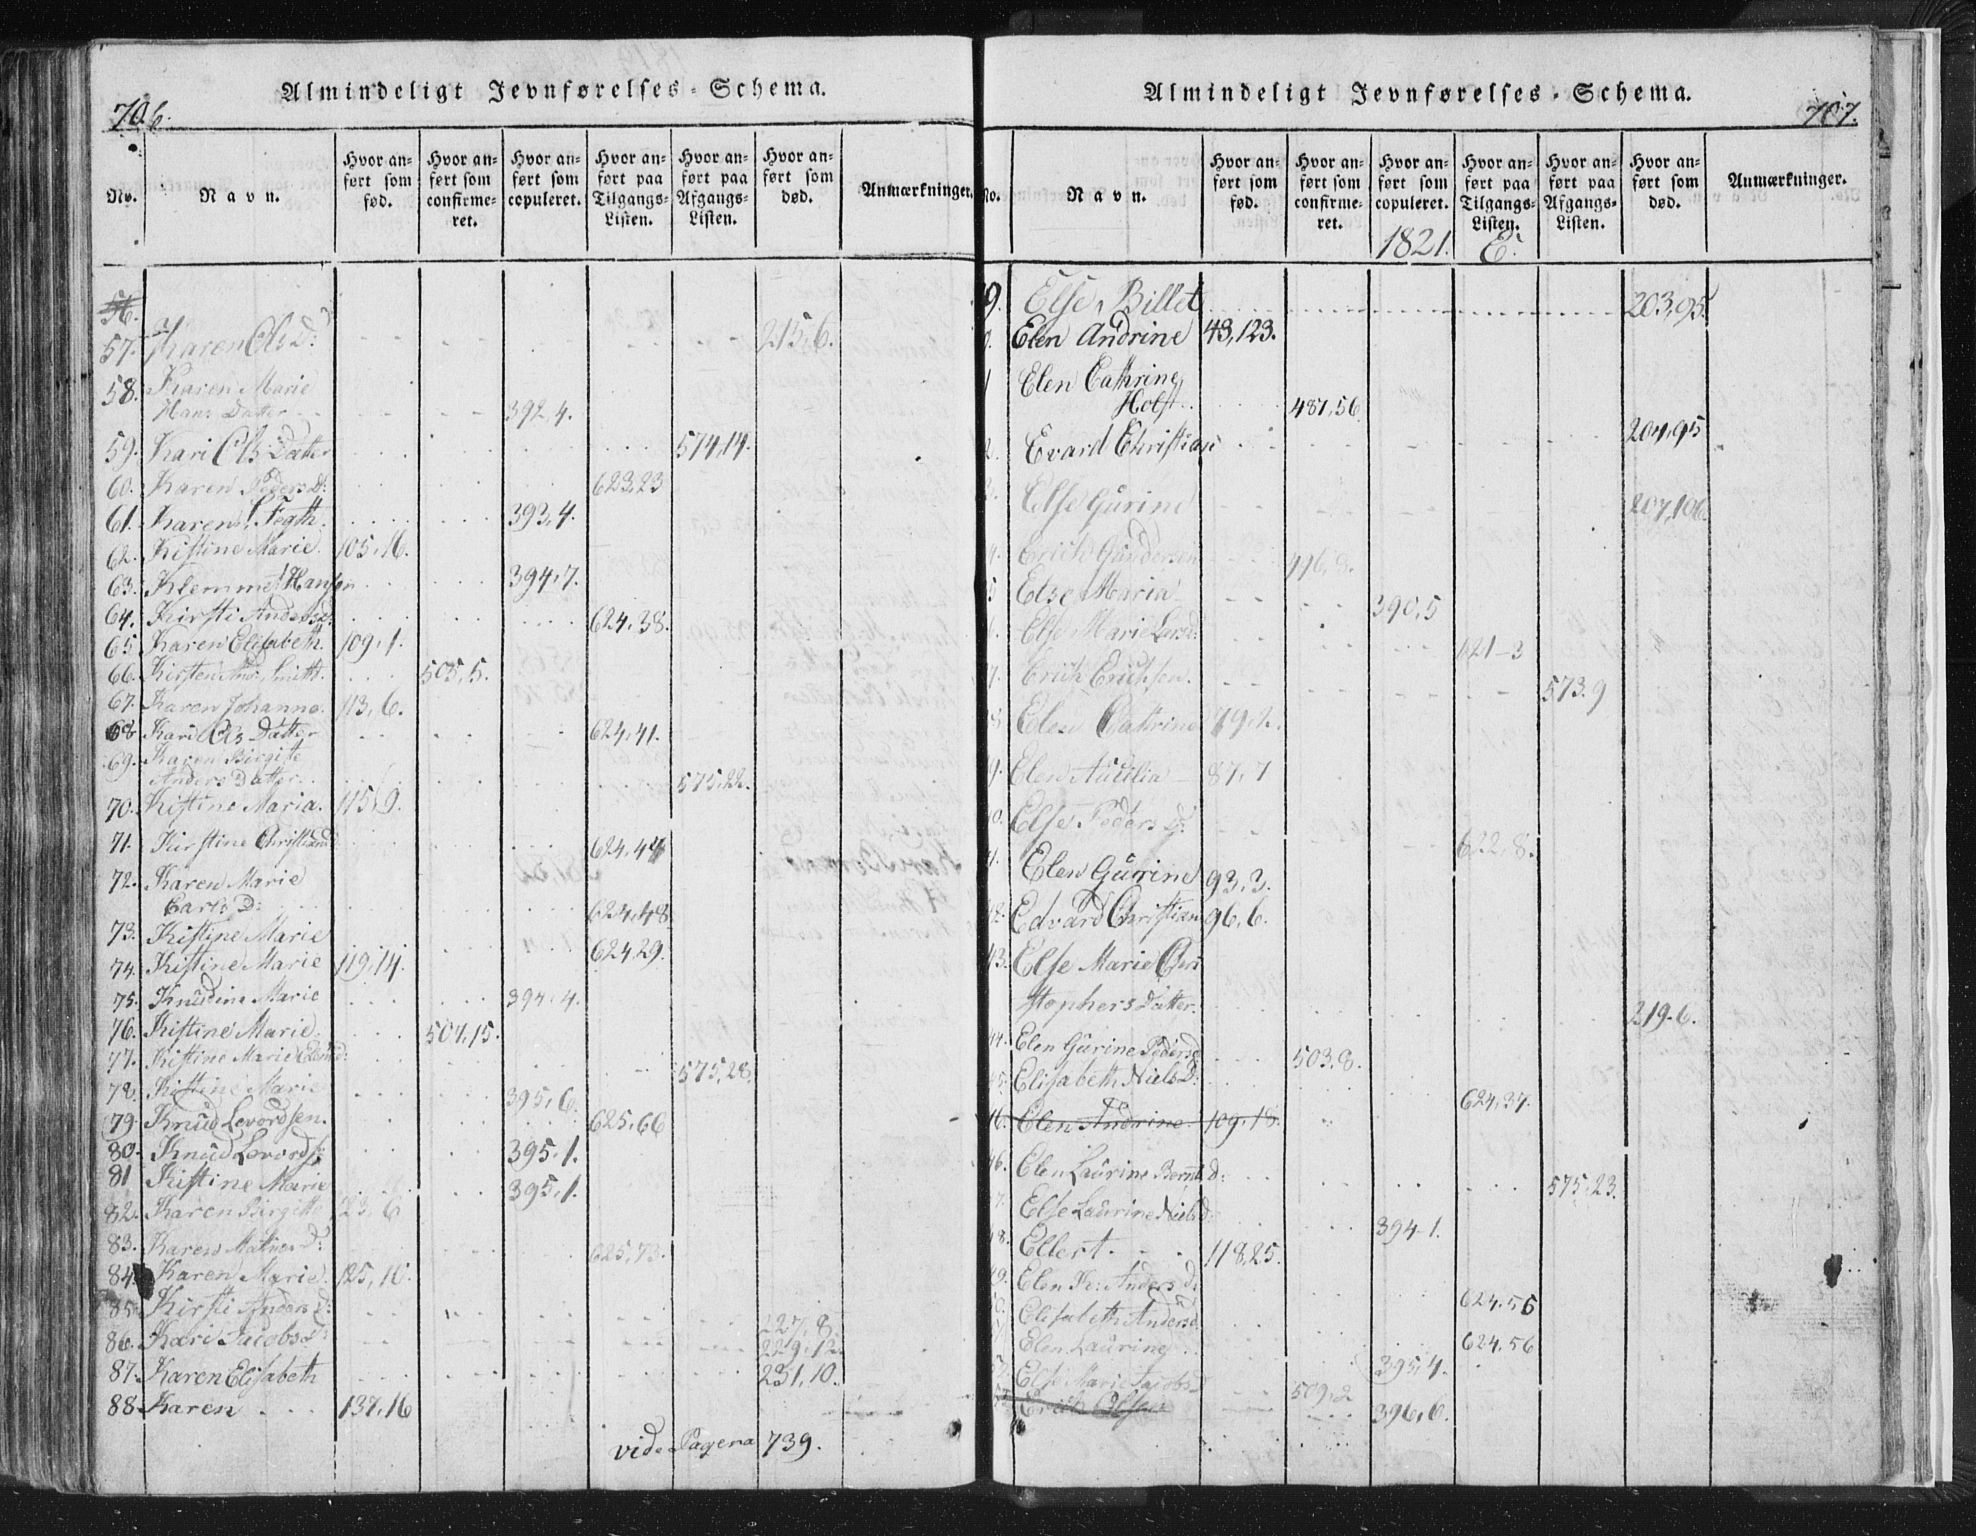 706.
Almindeligt Jevnførelses-Schema.
No.
Navn.
Hvor anført som fød.
Hvor anført som confirmeret.
Hvor anført som copuleret.
Hvor anført paa Tilgangs-Listen.
Hvor anført paa Afgangs-Listen.
Hvor anført som død.
Anmærkninger.
56.
57. Karen Ols D: 215,6.
58. Karen Marie
Hans Datter 392.4.
59. Kari Ols Datter 574,14.
60. Karen Peders D: 623,23
61. Karen Fegth. 393,4.
62. Kistine Marie. 105,16.
63. Klemmet Hansen 394,7.
64. Kirsti Andersd: 624,38.
65 Karen Elisabeth. 109,1.
66. Kirsten And: Smith. 505,5.
67. Karen Johanne. 113,6.
68 Kari Ols Datter 624,41.
69. Karen Birgite
Anders Datter. 575,22.
70. Kistine Maria. 115,9.
71. Kirstine Christiansd 624,44
72. Karen Marie
Carls D: 624,48
73. Kistine Marie 624,29.
74. Kistine Marie 119,14.
75. Knudine Marie 394,4.
76. Kistine Marie. 507,15.
77. Kistine Marie 575,28.
78. Kistine Marie 395,6.
79. Knud Levordsen. 625,66
80. Knud Levords: 395,1.
81 Kistine Marie 395,1.
82. Karen Birgitte 123,6
83. Karen D: 625,73.
84. Karen Marie. 125,10.
85. Kirsti Anders D: 227,8.
86. Kari Jacobs D: 229,12.
87. Karen Elisabeth 231,10.
88 Karen 137,16
vide Pagena 739.
707.
Almindeligt Jevnførelses-Schema.
No.
Navn.
Hvor anført som fød.
Hvor anført som confirmeret.
Hvor anført som copuleret.
Hvor anført paa Tilgangs-Listen.
Hvor anført paa Afgangs-Listen.
Hvor anført som død.
Anmærkninger.
1821. E.
9. Else Billet 203,95.
Elen Andrine 43,123.
1 Elen Cathrine
Holst. 487,56
2. Evard Christian 204,95
Else Gurine 207,106.
Erich Gundersen 496,8.
5 Else Maria 390,5
Else Marie Larsd: 621-3
Erich Erichsen. 573.9
Elen Cathrine 79,2.
9. Elen 87,7
0. Else Peders D: 622,8.
1. Elen Gurine 93,3.
42. Edvard Christian 96,6.
43. Else Marie Chri
stophers Datter. 219.6.
44. Elen Gurine Pedersd 503,8.
45. Elisabeth Niels D: 624,37.
46. Elen Andrine. 109,18.
46. Elen Laurine Berntsd: 575,23.
7. Else Laurine Nielsd: 394-1.
48. Ellert. 118,25.
49. Elen Anders d: 624,56
50. Elisabeth Andersd 624,56
Elen Laurine 395,4.
52. Else Marie Jacobsd 509,2
53. Erich Olsen 396,6.